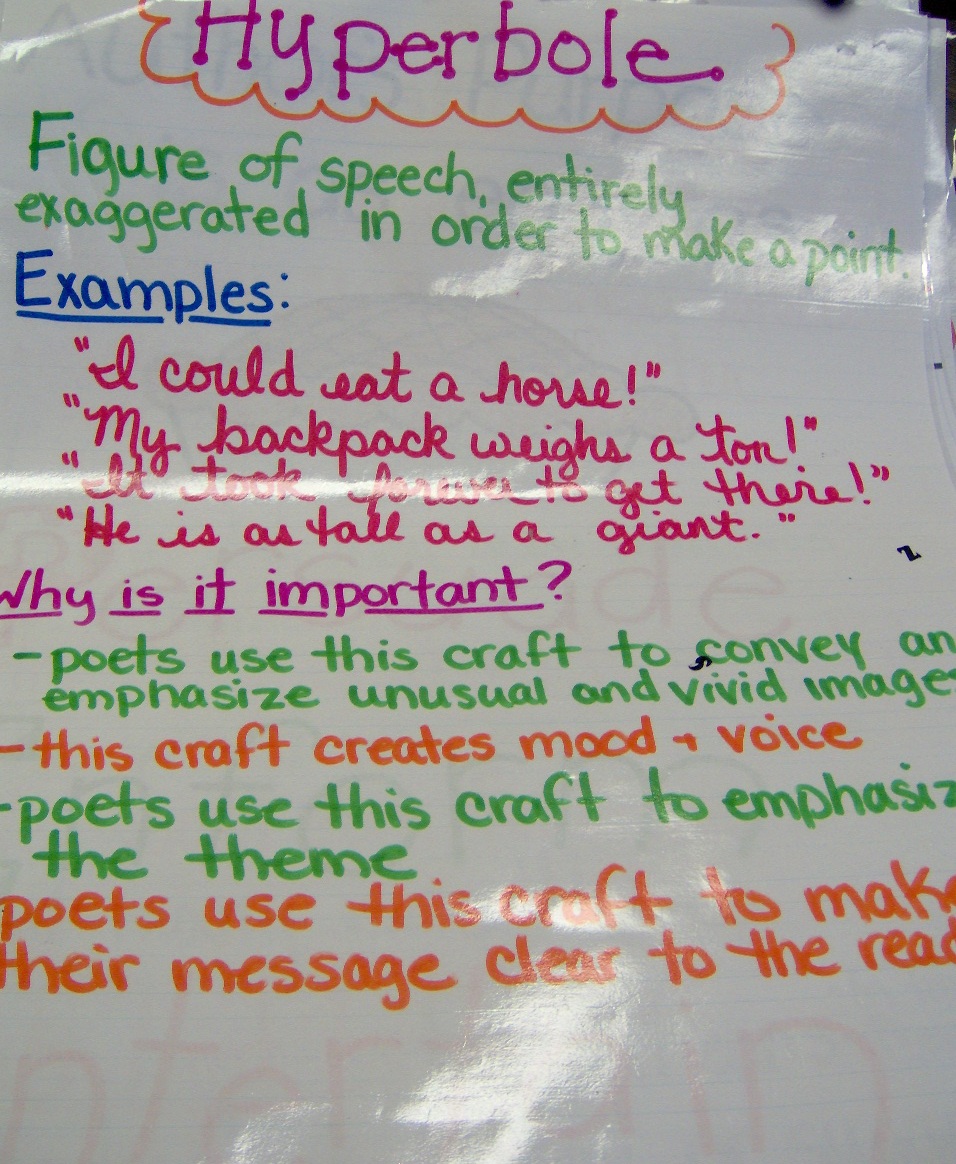 Hyperbole
Figure of speech, entirely
exaggerated in order to make a point.
Examples:
"I could eat a horse!"
"My backpack weighs a ton!"
"It took forever to get there!"
"He is as tall as a giant."
Why is it important?
-poets use this craft to convey an
emphasize unusual and vivid images
-this craft creates mood + voice
-poets use this craft to emphasiz
the theme
poets use this craft to make
their message clear to the read